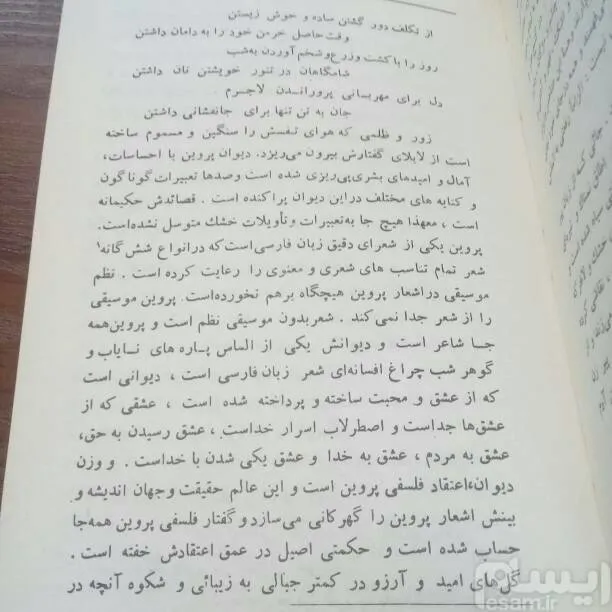 از تکلف دور گشتن ساده و خوش زیستن
وقت حاصل خرمن خود را به دامان داشتن
روز را با کشت وزرع و شخم آوردن به شب
شامگاهان در تنور خویشتن نان داشتن
دل برای مهربانی پروراندن لاجرم
جان به تن تنها برای جانفشانی داشتن
زور و ظلمی که هوای نفسش را سنگین و مسموم ساخته
است از لابلای گفتارش بیرون می‌ریزد. دیوان پروین با احساسات،
آمال و امیدهای بشری پی‌ریزی شده است وصدها تعبیرات گوناگون
و کنایه های مختلف در این دیوان پراکنده است . قصائدش حکیمانه
است ، معهذا هیچ جا به تعبیرات و تأویلات خشك متوسل نشده‌است.
پروین یکی از شعرای دقیق زبان فارسی است که درانواع شش گانه۱
شعر تمام تناسب های شعری و معنوی را رعایت کرده است . نظم
موسیقی در اشعار پروین هیچگاه برهم نخورده‌است. پروین موسیقی
را از شعر جدا نمی‌کند . شعر بدون موسیقی نظم است و پروین همه
جا شاعر است و دیوانش یکی از الماس پاره های نایاب و
گوهر شب چراغ افسانه‌ای شعر زبان فارسی است ، دیوانی است
که از عشق و محبت ساخته و پرداخته شده است ، عشقی که از
عشق‌ها جداست و اصطرلاب اسرار خداست. عشق رسیدن به حق،
عشق به مردم ، عشق به خدا و عشق یکی شدن با خداست . و وزن
دیوان، اعتقاد فلسفی پروین است و این عالم حقیقت وجهان اندیشه و
بینش اشعار پروین را گهرکانی می‌سازد و گفتار فلسفی پروین همه‌جا
حساب شده است و حکمتی اصیل در عمق اعتقادش خفته است .
گل‌های امید و آرزو در کمتر جبالی به زیبائی و شکوه آنچه در
ایسام
esam.ir